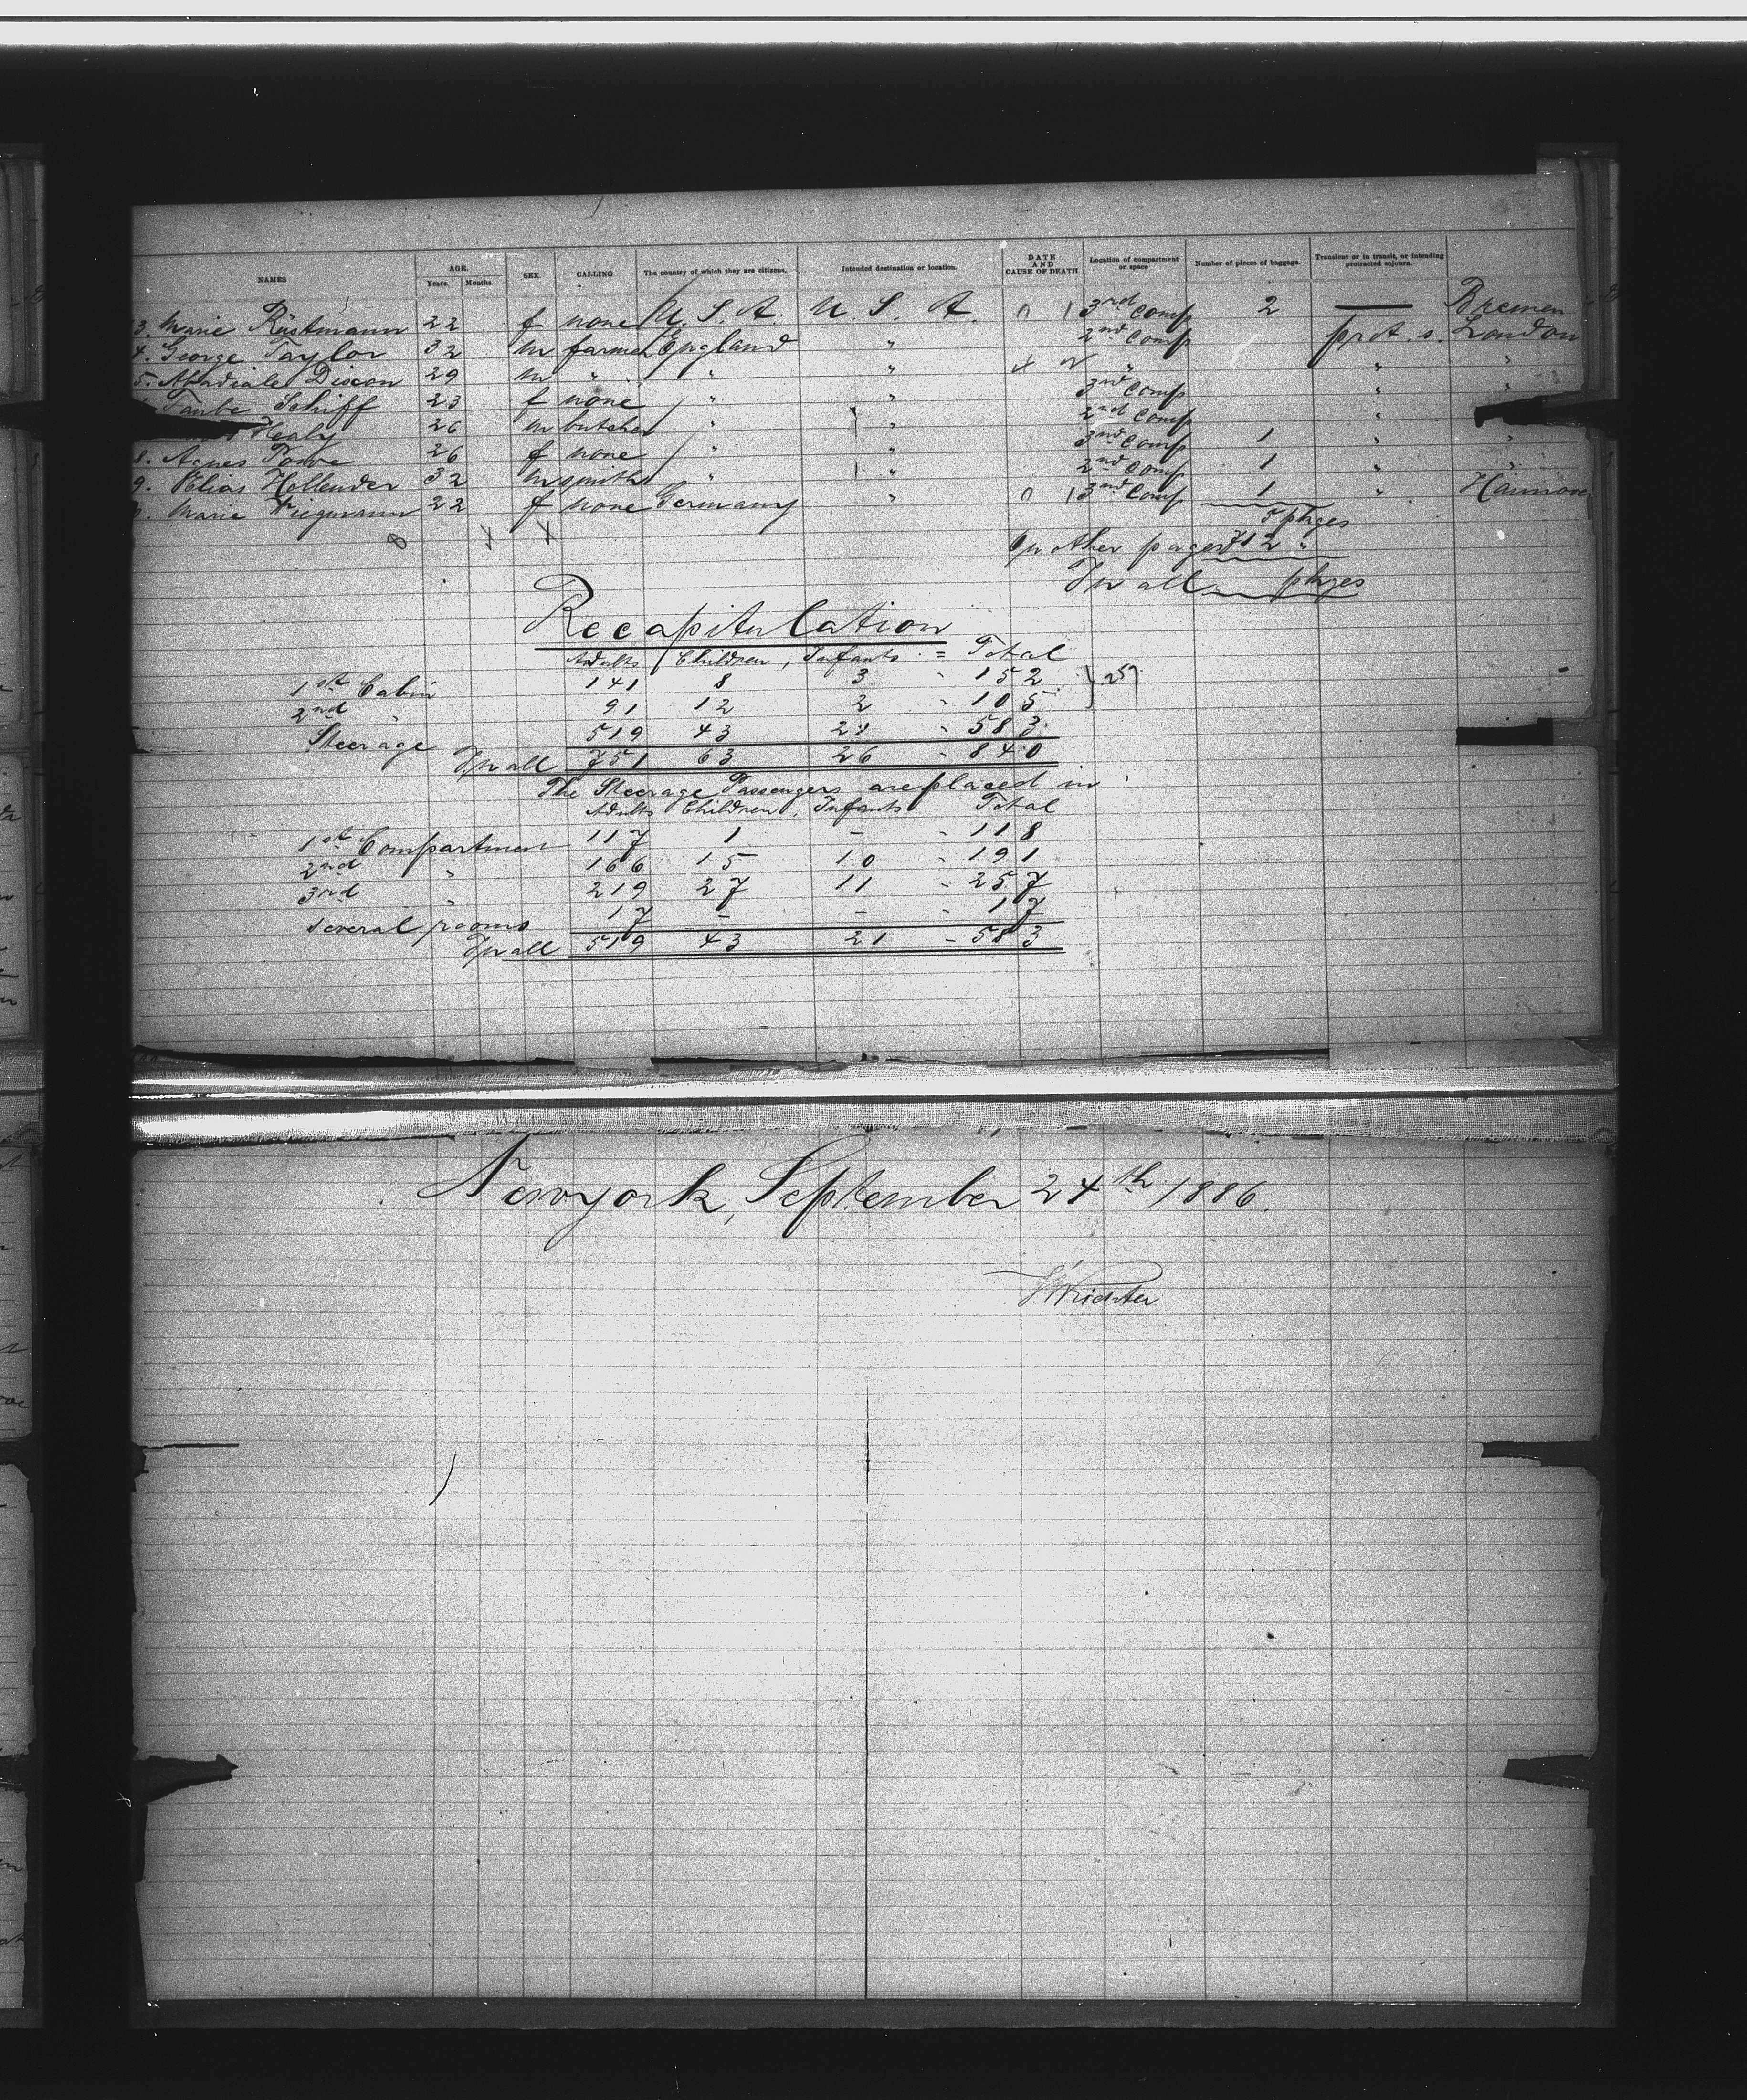 NAMES AGE. Years. Months. SEX. CALLING The country of which they are citizens. Intended destination or location. DATE AND CAUSE OF DEATH Location of compartment or space Number of pieces of baggage. Transient or in transit, or intending protracted sojourn.
3. Marie Rüstmann 22 f none U. S. A. U. S. A. 3rd Comp 2 — Bremen
4. George Taylor 32 m farmer England " 2nd Comp prot. s. London
5. Dixon 29 m " " " " " "
Taube Schiff 23 f none " " 3rd Comp " "
Healy 26 m butcher " " 2nd Comp "
8. Agnes 26 f none " " 3rd Comp 1 " "
9. Elias Hollender 32 m smith " " 2nd Comp 1 " "
Marie Wiegmann 22 f none Germany " 3rd Comp 1 " Hannover
5 pkges
On other pages 712 "
In all pkges
Recapitulation
Adults, Children, Infants = Total
1st Cabin 141 8 3 - 152 } 257
2nd " 91 12 2 - 105
Steerage 519 43 21 - 583
In all 751 63 26 - 840
The Steerage Passengers are placed in
Adults Children, Infants Total
1st Compartment 117 1 - - 118
2nd " 166 15 10 - 191
3rd " 219 27 11 - 257
several rooms 17 - - - 17
In all 519 43 21 - 583
Newyork, September 24th 1886.
Richter